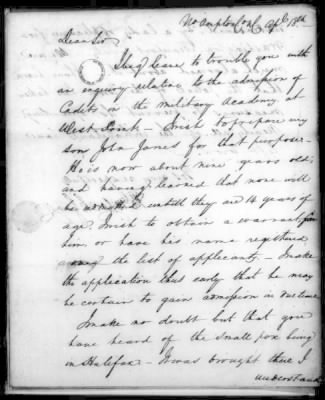 Northampton Co. N.C. Ap.l 18th
Dear Sir
I beg leave to trouble you with
an enquiry relative to the admission of
Cadets in the military Academy at
West Point - I wish to propose my
son John James for that purpose -
He is now about nine years old;
and having learned that none will
be admitted untill they are 14 years of
age I wish to obtain a warrant for
him or have his name registered
among the list of applicants - I make
the application thus early that he may
be certain to gain admission in due time
I make no doubt but that you
have heard of the small pox being
in Halifax - It was brought there I
understand